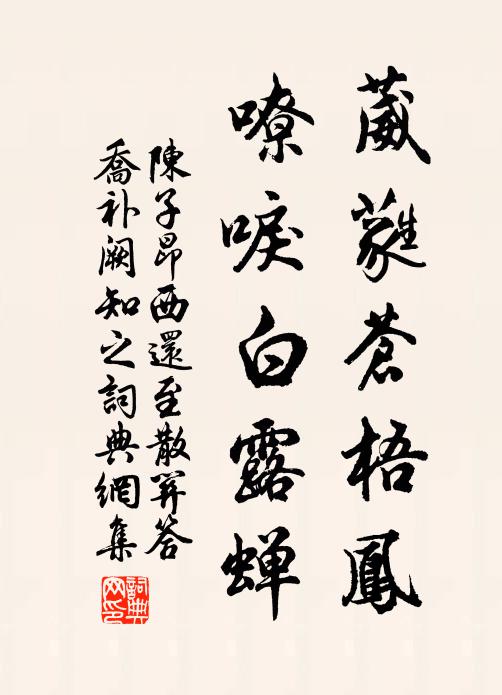 葳蕤蒼梧鳳
嘹唳白露蟬
陳子昂西還至散関答
喬补阙知之詞典網集
詞典网印